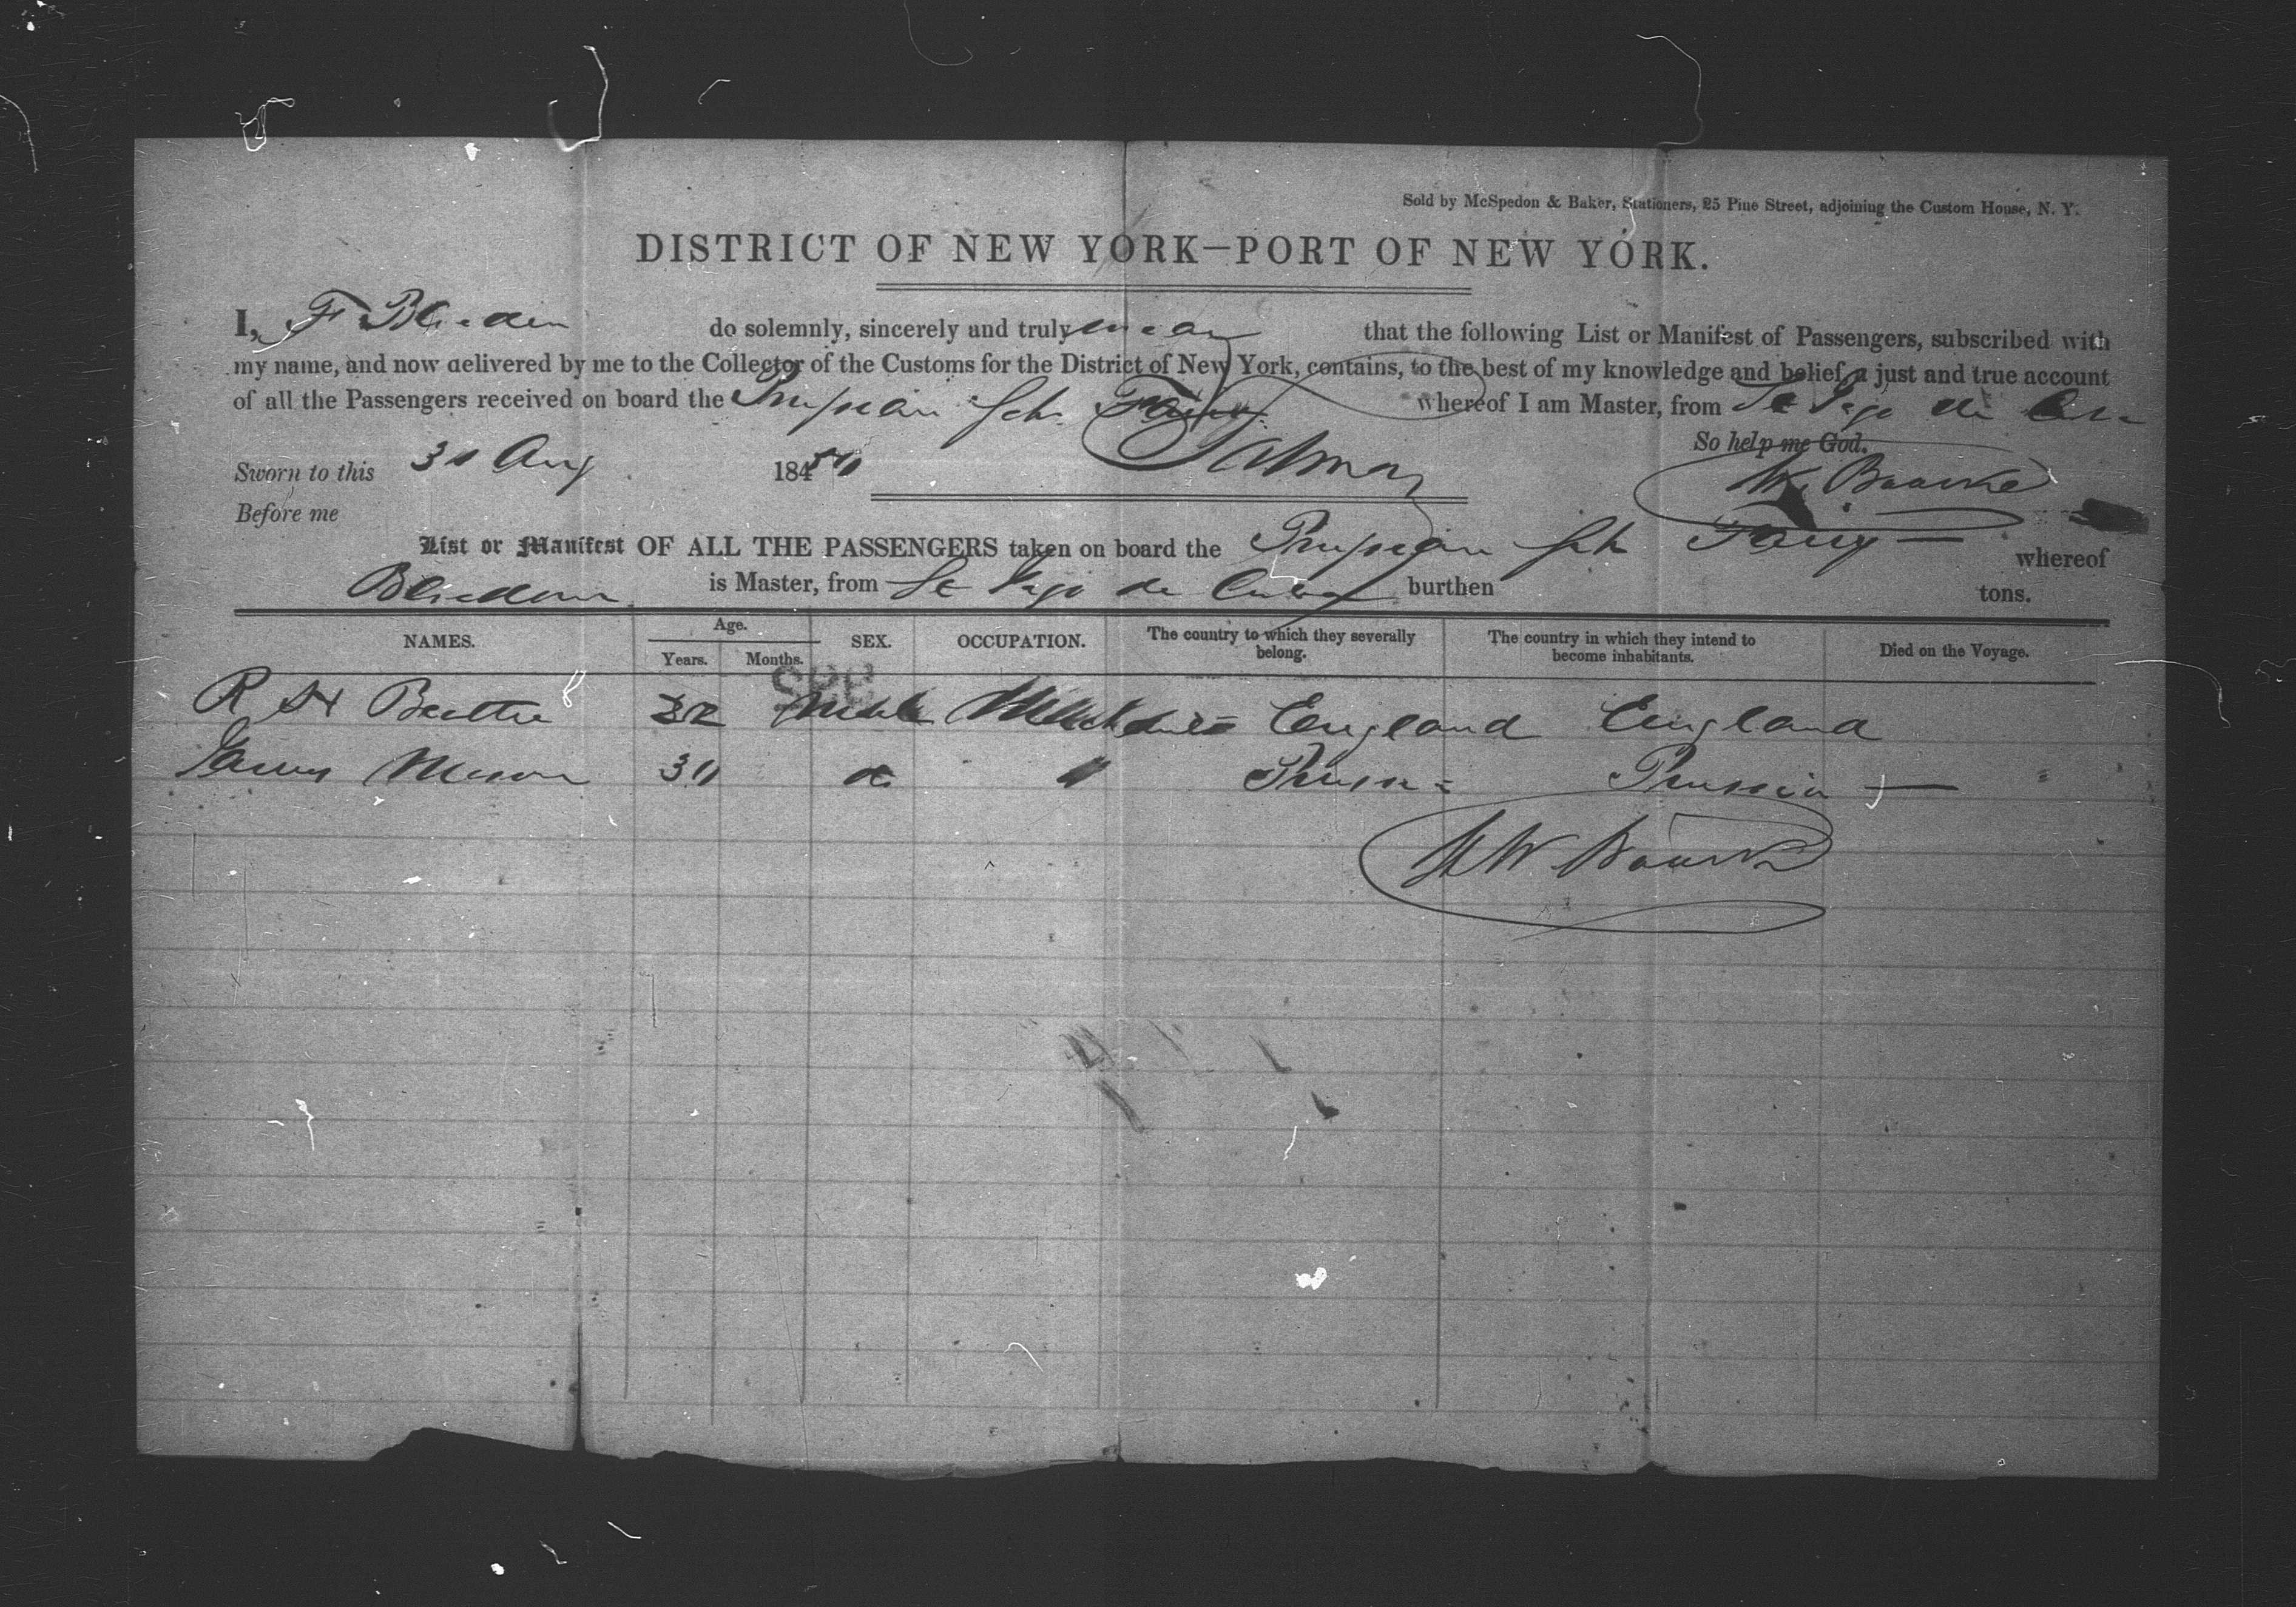 Sold by McSpedon & Baker, Stationers, 25 Pine Street, adjoining the Custom House, N. Y.
DISTRICT OF NEW YORK—PORT OF NEW YORK.
I, F do solemnly, sincerely and truly swear that the following List or Manifest of Passengers, subscribed with
my name, and now delivered by me to the Collector of the Customs for the District of New York, contains, to the best of my knowledge and belief, a just and true account
of all the Passengers received on board the Prussian Sch. whereof I am Master, from St Jago de Cuba
So help me God.
Sworn to this Aug 184
Before me
List or Manifest OF ALL THE PASSENGERS taken on board the Prussian Sch whereof
is Master, from St Jago de Cuba burthen tons.
NAMES. Age. Years. Months. SEX. OCCUPATION. The country to which they severally belong. The country in which they intend to become inhabitants. Died on the Voyage.
R H Beattie Male England England
James 30 do " Pruss Prussia